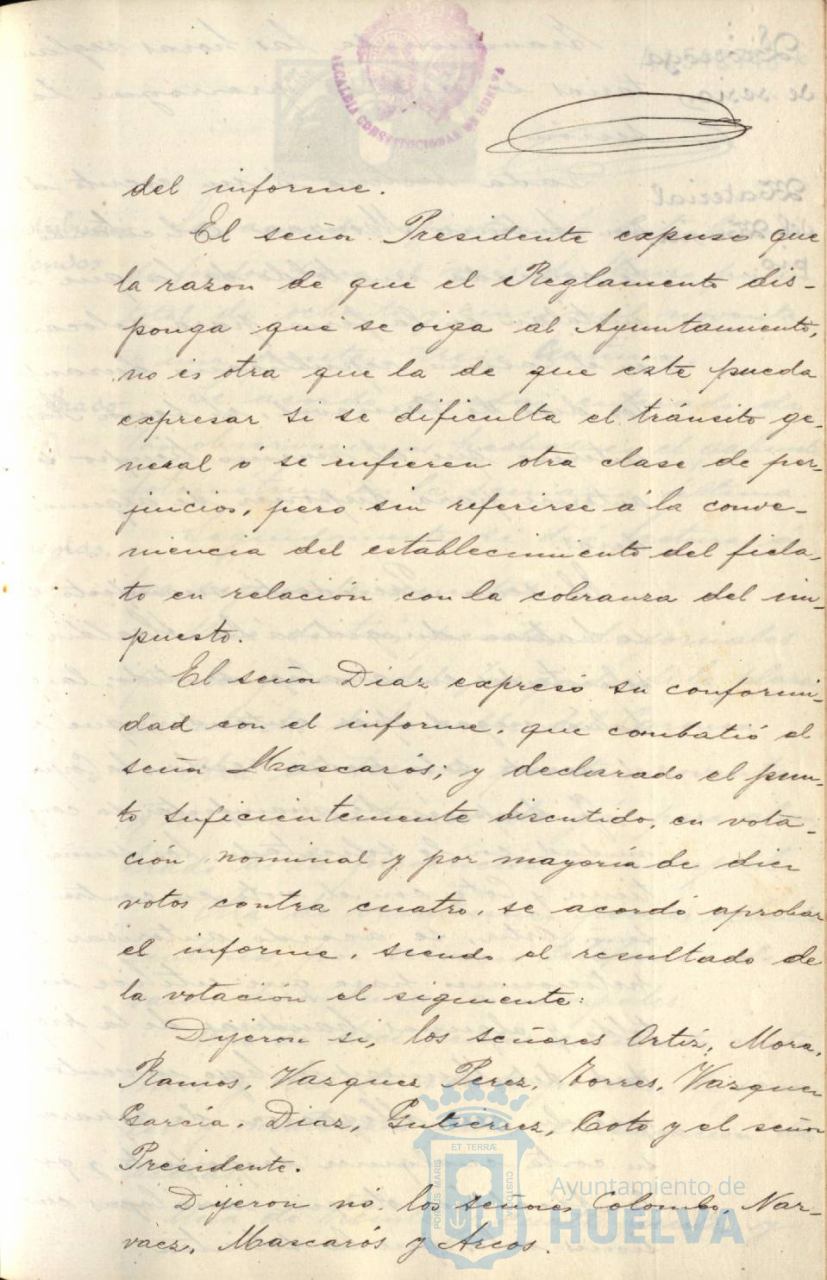 ALCALDIA CONSTITUCIONAL DE HUELVA
del informe.
El señor Presidente expuso que
la razon de que el Reglamento dis-
ponga que se oiga al Ayuntamiento,
no es otra que la de que éste pueda
expresar si se dificulta el tránsito ge-
neral ó se infieren otra clase de per-
juicios, pero sin referirse á la conve-
niencia del establecimiento del fiela-
to en relación con la cobranza del im-
puesto.
El señor Diaz expresó su conformi-
dad con el informe, que combatió el
señor Mascarós; y declarado el pun-
to suficientemente discutido, en vota-
ción nominal y por mayoría de diez
votos contra cuatro, se acordó aprobar
el informe, siendo el resultado de
la votación el siguiente:
Dijeron si, los señores Ortiz, Mora,
Ramos, Vazquez Perez, Torres, Vazquez
García, Diaz, Gutierrez, Coto y el señor
Presidente.
Dijeron nó, los señores Colombo, Nar-
vaez, Mascarós y Arcos.
ET TERRÆ
PORTUS MARIS
CUSTODIA
Ayuntamiento de
HUELVA